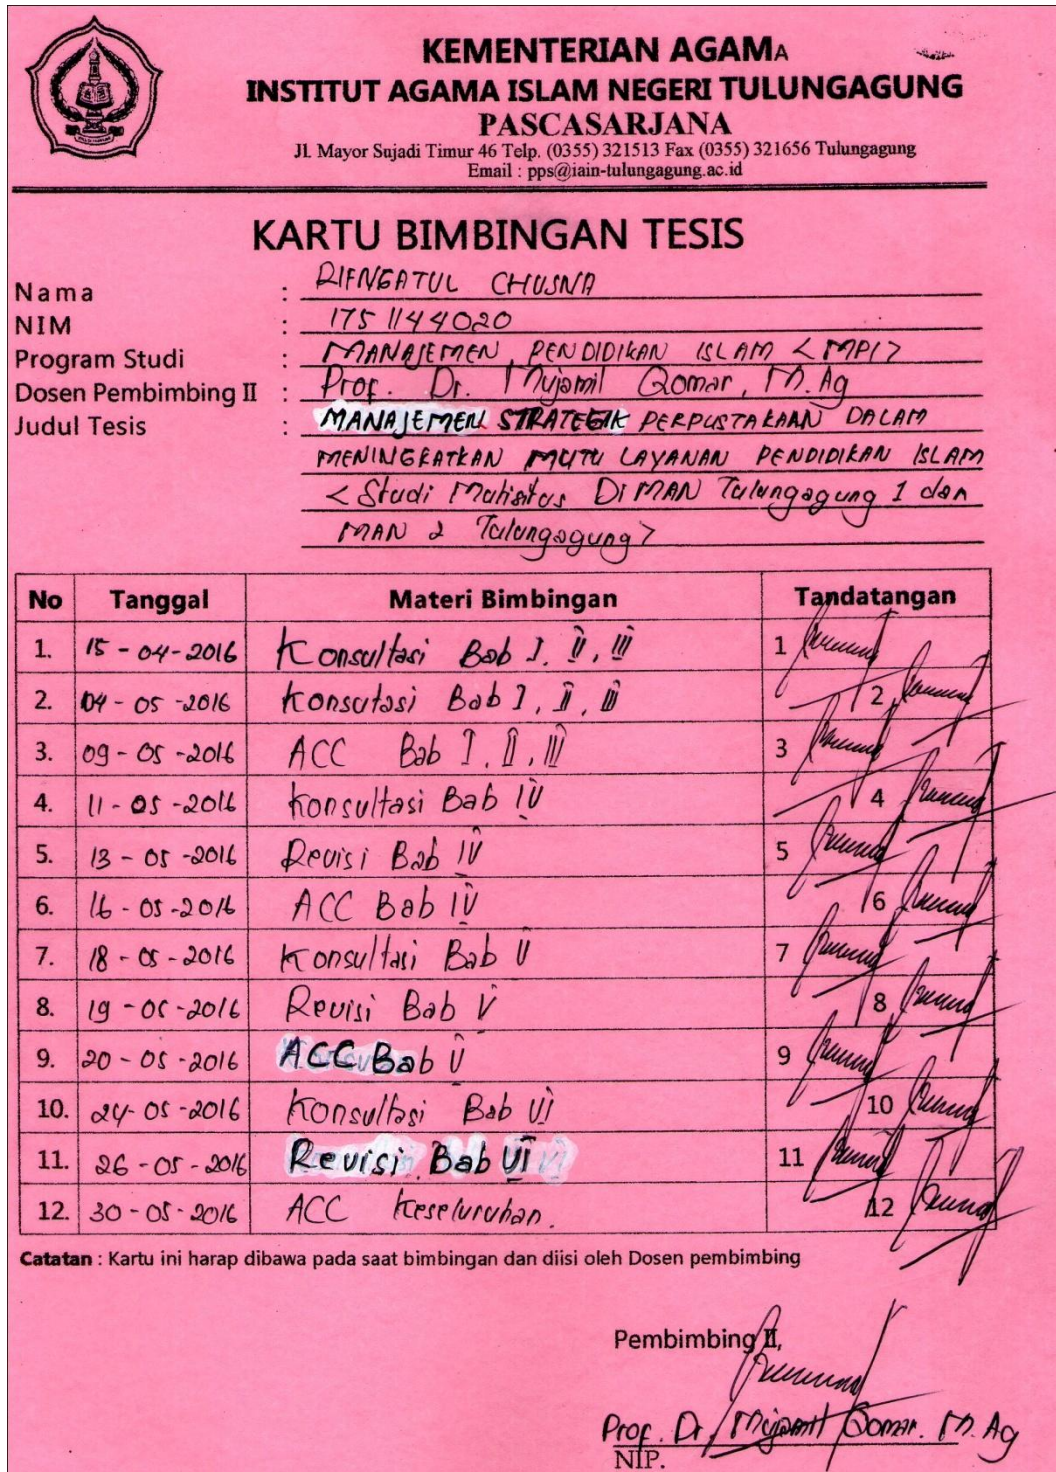 KEMENTERIAN AGAMA
INSTITUT AGAMA ISLAM NEGERI TULUNGAGUNG
PASCASARJANA
Jl. Mayor Sujadi Timur 46 Telp. (0355) 321513 Fax (0355) 321656 Tulungagung
Email : pps@iain-tulungagung.ac.id
KARTU BIMBINGAN TESIS
Nama : RIFNGATUL CHUSNA
NIM : 1751144020
Program Studi : MANAJEMEN PENDIDIKAN ISLAM <MPI>
Dosen Pembimbing II : Prof. Dr. Mujamil Qomar, M.Ag
Judul Tesis : MANAJEMEN STRATEGIK PERPUSTAKAAN DALAM
MENINGKATKAN MUTU LAYANAN PENDIDIKAN ISLAM
<Studi Multisitus Di MAN Tulungagung 1 dan
MAN 2 Tulungagung>
No Tanggal Materi Bimbingan Tandatangan
1. 15-04-2016 Konsultasi Bab I, II, III 1
2. 04-05-2016 Konsutasi Bab I, II, III 2
3. 09-05-2016 ACC Bab I, II, III 3
4. 11-05-2016 Konsultasi Bab IV 4
5. 13-05-2016 Revisi Bab IV 5
6. 16-05-2016 ACC Bab IV 6
7. 18-05-2016 Konsultasi Bab V 7
8. 19-05-2016 Revisi Bab V 8
9. 20-05-2016 ACC Bab V 9
10. 24-05-2016 Konsultasi Bab VI 10
11. 26-05-2016 Revisi Bab VI 11
12. 30-05-2016 ACC Keseluruhan. 12
Catatan : Kartu ini harap dibawa pada saat bimbingan dan diisi oleh Dosen pembimbing
Pembimbing II,
Prof. Dr. Mujamil Qomar. M.Ag
NIP.